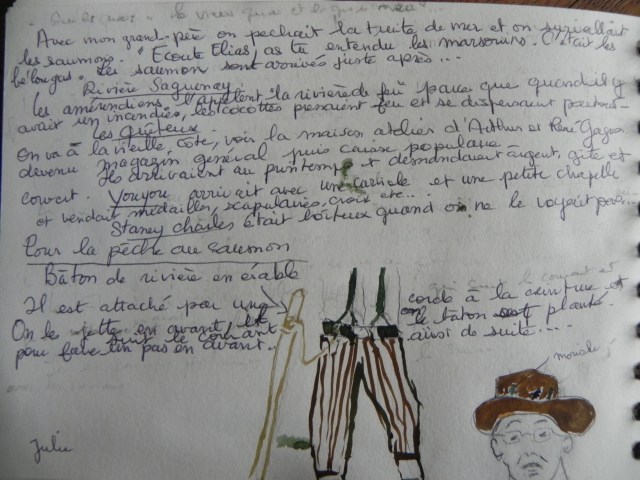 Avec mon grand-père on pêchait la truite de mer et on surveillait
les saumons. "Ecoute Elias, as tu entendu les marsouins. C'était les
bélougas. Les saumon sont arrivés juste après...
Rivière Saguenay
Les amérindiens l'appellent la rivière de feu parce que quand il y
avait un incendies, les cocottes prenaient feu et se dispersaient partout
Les Quêteux.
On va à la vieille côte, voir la maison, atelier d'Arthur et René Gagnon
devenu magazin général puis caisse populaire
Ils arrivaient au printemps et demandaient argent, gîte et
couvert. Youyou arrivait avec une carriole et une petite chapelle
et vendait médailles, scapulaires, croix etc...
Staney Charles était boiteux quand on ne le voyait pas...
Pour la pêche au saumon
Bâton de rivière en érable
Il est attaché par une corde à la ceinture et
On le jette en avant le bâton plante.
pour faire un pas en avant.. ainsi de suite....
mouche
Julie